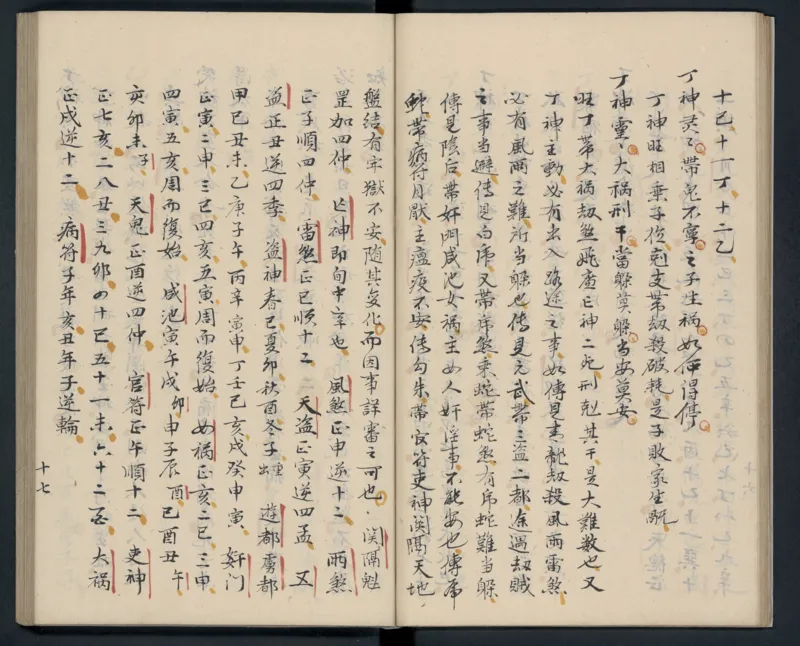 十巳十一丁十二乙
丁神灵灵帶鬼不寧之子生禍如何得停
丁神旺相乗子位剋支帶劫殺破耗是子敗家生翫
丁神靈灵大禍刑干當躲莫躲當安莫安
旺丁帶大禍劫煞姚査亡神二死刑剋其干是大難数也又
丁神主動必有出入路途之事如傳見青龍劫殺風雨雷煞
必有風雨之難所當躲也傳見元武帶三盗二都途遇劫賊
之事当避傳見白虎又帶虎煞乗蛇帶蛇煞有虎蛇難当躲
傳見陰后帶奸門咸池女禍主女人奸淫事不能安也傳虎
蛇帶病符月厭主瘟疫不安傳勾朱帶官符吏神関隔天地
盤結有牢獄不安随其变化而因事詳審之可也 関隔魁
罡加四仲 亡神即旬中辛也 風煞正申逆十二 雨煞
正子順四仲 雷煞正巳順十二 天盗正寅逆四孟 又
盗正丑逆四季 盗神春巳夏卯秋酉冬子 遊都虜都
甲巳丑未乙庚子午丙辛寅申丁壬巳亥戊癸申寅 奸门
正寅二申三巳四亥五寅周而復始 女禍正亥二巳三申
四寅五亥周而復始 咸池寅午戌卯申子辰酉巳酉丑午
亥卯未子 天鬼正酉逆四仲 官符正午順十二 吏神
正七亥二八丑三九卯四十巳五十一未六十二酉 大禍
正戌逆十二 病符子年亥丑年子逆輪
十七